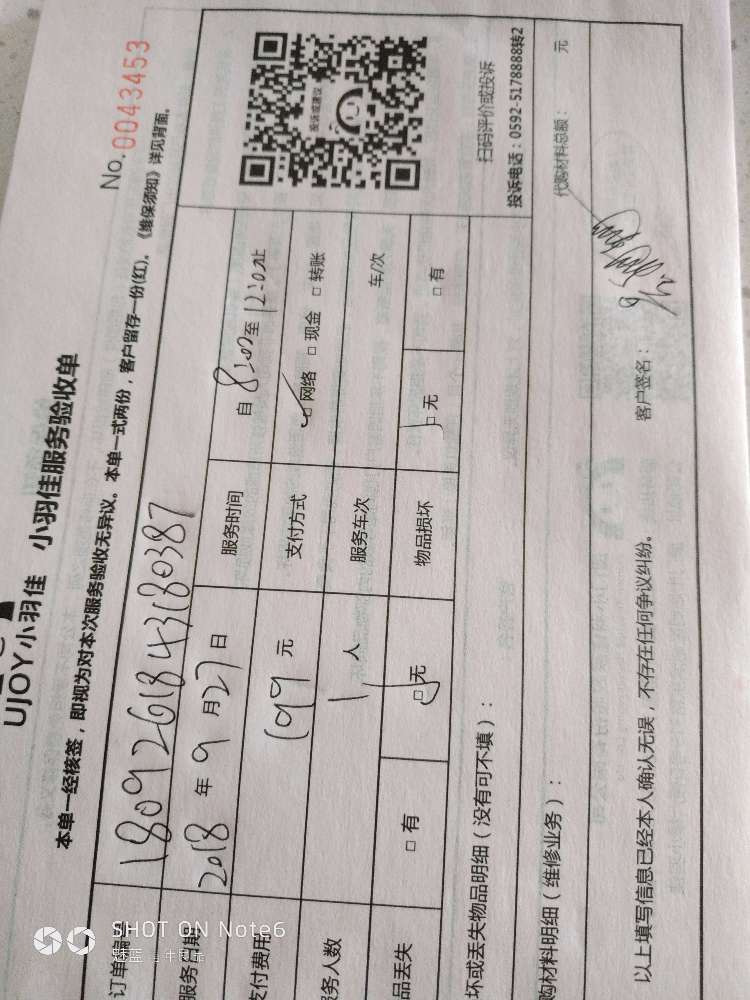 No.0043453
UJOY小羽佳 小羽佳服务验收单
本单一经核签，即视为对本次服务验收无异议。本单一式两份，客户留存一份(红)。《维保须知》详见背面。
订单编号 1809261843180387
服务日期 2018年9月27日 服务时间 自8:00至12:00止
支付费用 199元 支付方式 □网络 □现金 □转账
服务人数 1人 服务车次 车/次
品丢失 □有 □无 物品损坏 □无 □有
投诉或建议
扫码评价或投诉
投诉电话：0592-5178888转2
坏或丢失物品明细（没有可不填）：
购材料明细（维修业务）： 代购材料总额： 元
以上填写信息已经本人确认无误，不存在任何争议纠纷。 客户签名：
SHOT ON Note6